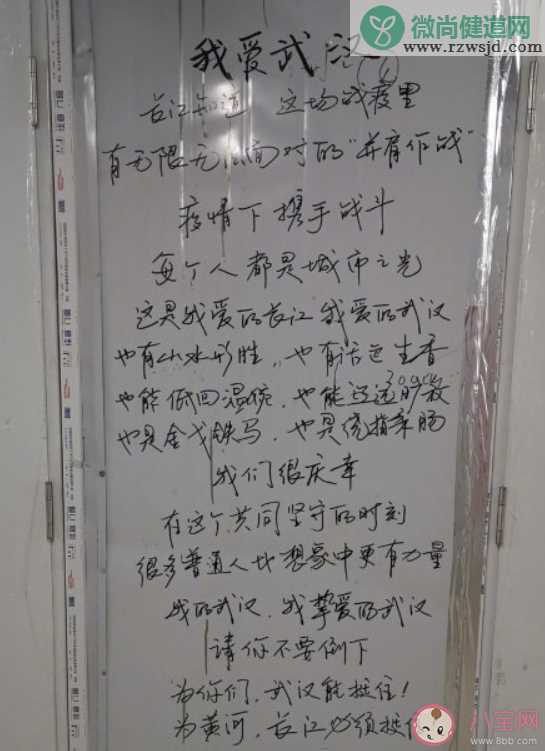 微尚健道网
www.rzwsjd.com
我爱武汉
长江知道 这场战疫里
有无限无 面对的"并肩作战"
疫情下携手战斗
每个人都是城市之光
这是我爱的长江 我爱的武汉
也有山水形胜,也有活色生香
也能低回温婉,也能
也是金戈铁马,也是绕指柔肠
我们很庆幸
在这个共同坚守的时刻
很多普通人比想象中更有力量
我的武汉,我挚爱的武汉
请你不要倒下
为你们,武汉能挺住!
为黄河,长江必须挺住
八宝网
www.8bb.com